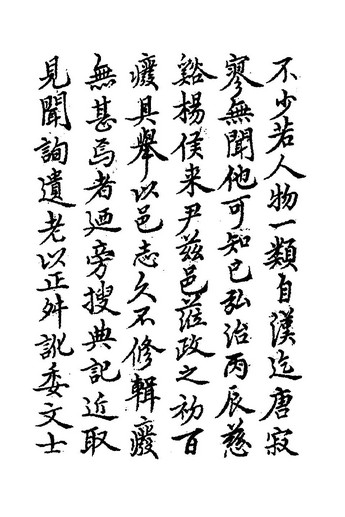 不少若人物一類自漢迄唐寂
寥無聞他可知已弘治丙辰慈
谿楊侯来尹兹邑蒞政之初百
癈具舉以邑志久不修輯癈
無甚焉者廼旁搜典記近取
見聞詢遺老以正舛訛委文士